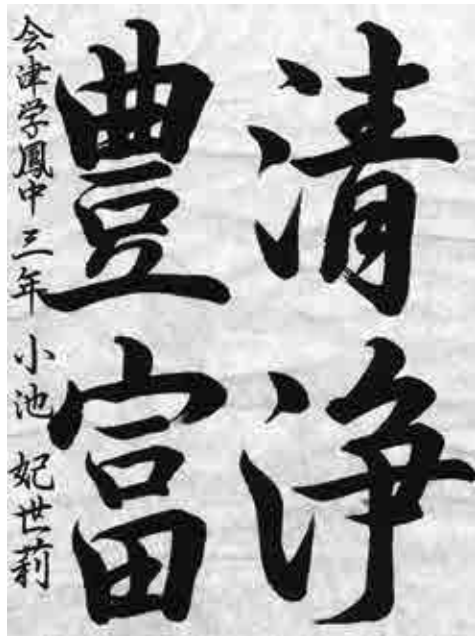 清浄
豊富
会津学鳳中三年 小池 妃世莉